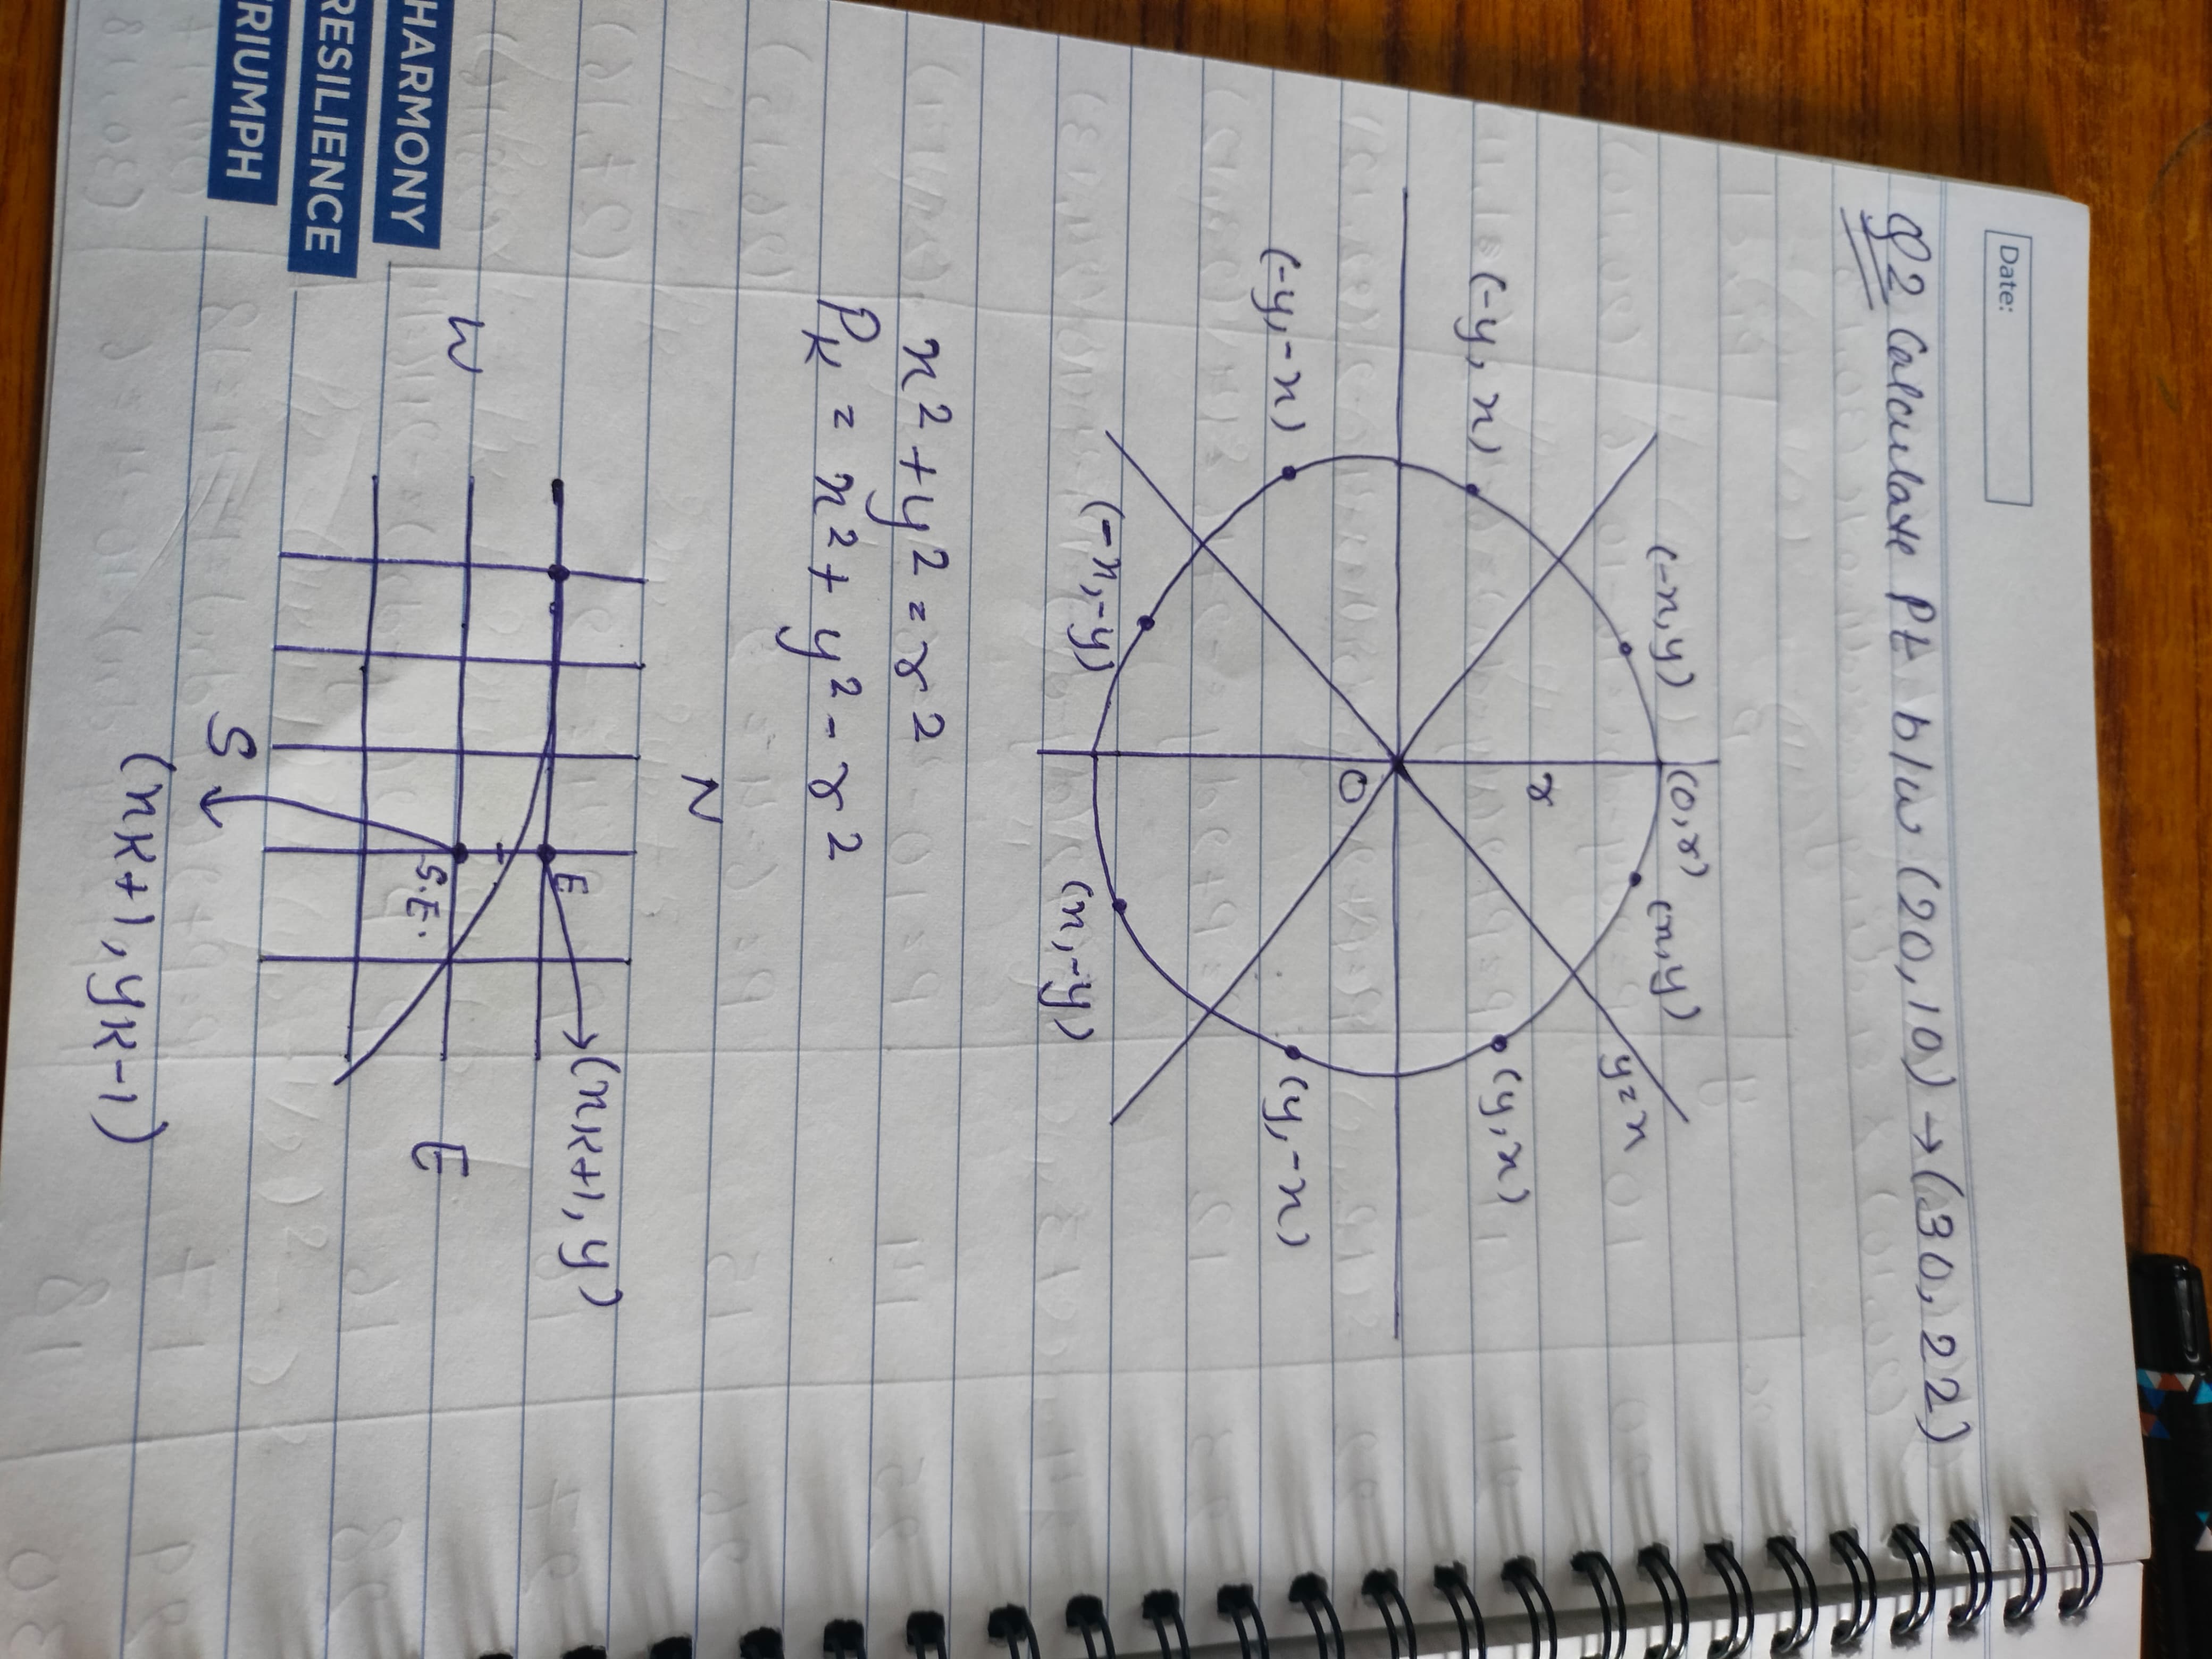 Date:
Q2 Calculate Pt b/w (20,10) → (30,22)
(0,r)
(-x,y) (x,y)
y=x
r
(-y,x) (y,x)
O
(-y,-x) (y,-x)
(-x,-y) (x,-y)
x² + y² = r²
Pk = x² + y² - r²
N
(xk+1, y)
E
W E
S.E.
S
(xk+1, yk-1)
HARMONY
RESILIENCE
TRIUMPH